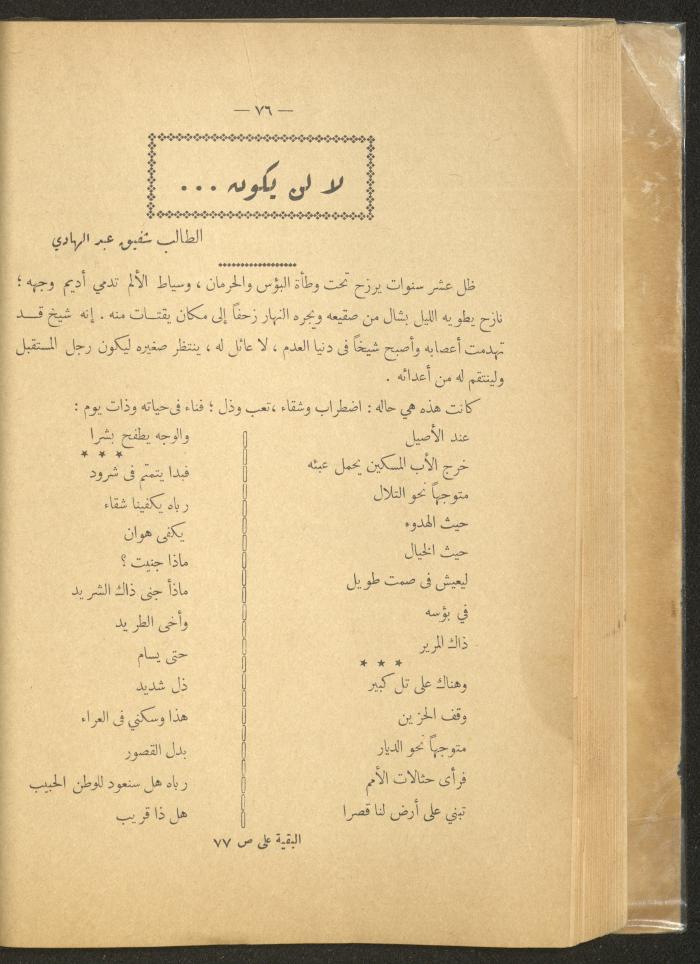 — ٧٦ —
لا لن يكون ...
الطالب شفيق عبد الهادي
ظل عشر سنوات يرزح تحت وطأة البؤس والحرمان ، وسياط الألم تدمي أديم وجهه ؛
نازح يطويه الليل بشال من صقيعه ويجره النهار زحفاً إلى مكان يقتـات منه . إنه شيخ قـــد
تهدمت أعصابه وأصبح شيخاً فى دنيا العدم ، لا عائل له ، ينتظر صغيره ليكون رجل المستقبل
ولينتقم له من أعدائه .
كانت هذه هي حاله : اضطراب وشقاء ،تعب وذل ؛ فناء فى حياته وذات يوم :
عند الأصيل
خرج الأب المسكين يحمل عبئه
متوجهاً نحو التلال
حيث الهدوء
حيث الخيال
ليعيش فى صمت طويل
في بؤسه
ذاك المرير
* * *
وهناك على تل كبير
وقف الحزين
متوجهاً نحو الديار
فرأى حثالات الأمم
تبني على أرض لنا قصرا
والوجه يطفح بشرا
* * *
فبدا يتمتم فى شرود
رباه يكفينا شقاء
يكفى هوان
ماذا جنيت ؟
ماذأ جنى ذاك الشريد
وأخى الطريد
حتى يسام
ذل شديد
هذا وسكني فى العراء
بدل القصور
رباه هل سنعود للوطن الحبيب
هل ذا قريب
البقية على ص ٧٧